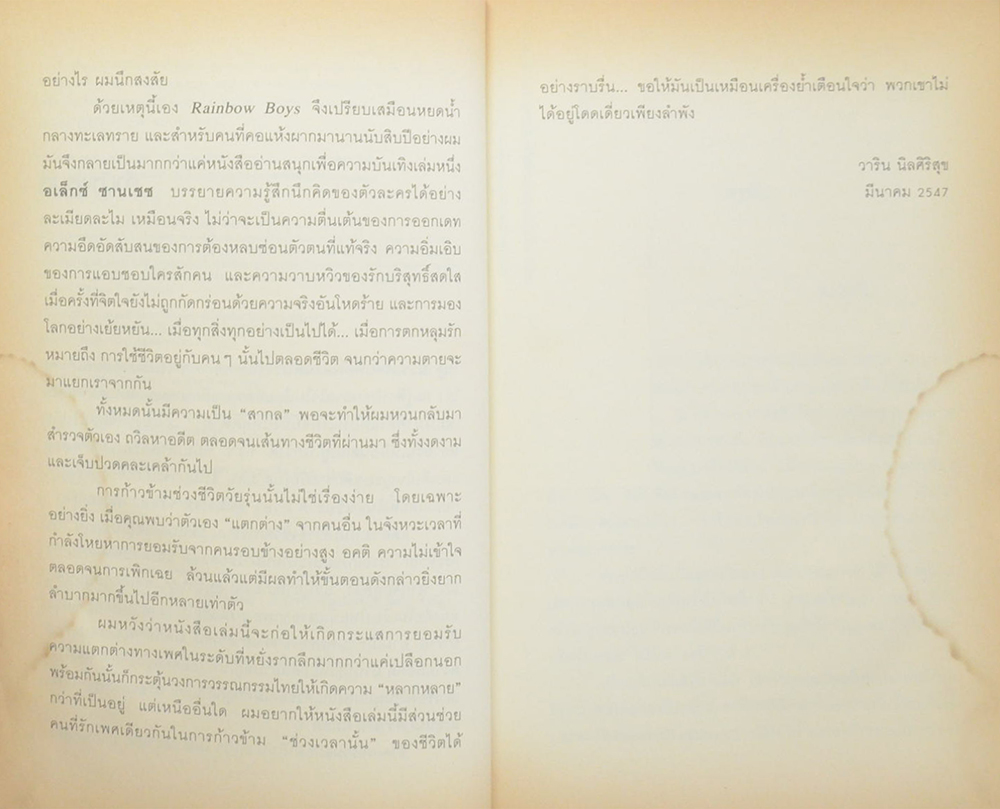 อย่างไร ผมนึกสงสัย
ด้วยเหตุนี้เอง Rainbow Boys จึงเปรียบเสมือนหยดน้ำ
กลางทะเลทราย และสำหรับคนที่คอแห้งผากมานานนับสิบปีอย่างผม
มันจึงกลายเป็นมากกว่าแค่หนังสืออ่านสนุกเพื่อความบันเทิงเล่มหนึ่ง
อเล็กซ์ ซานเชซ บรรยายความรู้สึกนึกคิดของตัวละครได้อย่าง
ละเมียดละไม เหมือนจริง ไม่ว่าจะเป็นความตื่นเต้นของการออกเดท
ความอึดอัดสับสนของการต้องหลบซ่อนตัวตนที่แท้จริง ความอิ่มเอิบ
ของการแอบชอบใครสักคน และความวาบหวิวของรักบริสุทธิ์สดใส
เมื่อครั้งที่จิตใจยังไม่ถูกกัดกร่อนด้วยความจริงอันโหดร้าย และการมอง
โลกอย่างเย้ยหยัน... เมื่อทุกสิ่งทุกอย่างเป็นไปได้... เมื่อการตกหลุมรัก
หมายถึง การใช้ชีวิตอยู่กับคน ๆ นั้นไปตลอดชีวิต จนกว่าความตายจะ
มาแยกเราจากกัน
ทั้งหมดนั้นมีความเป็น “สากล” พอจะทำให้ผมหวนกลับมา
สำรวจตัวเอง ถวิลหาอดีต ตลอดจนเส้นทางชีวิตที่ผ่านมา ซึ่งทั้งงดงาม
และเจ็บปวดคละเคล้ากันไป
การก้าวข้ามช่วงชีวิตวัยรุ่นนั้นไม่ใช่เรื่องง่าย โดยเฉพาะ
อย่างยิ่ง เมื่อคุณพบว่าตัวเอง “แตกต่าง” จากคนอื่น ในจังหวะเวลาที่
กำลังโหยหาการยอมรับจากคนรอบข้างอย่างสูง อคติ ความไม่เข้าใจ
ตลอดจนการเพิกเฉย ล้วนแล้วแต่มีผลทำให้ขั้นตอนดังกล่าวยิ่งยาก
ลำบากมากขึ้นไปอีกหลายเท่าตัว
ผมหวังว่าหนังสือเล่มนี้จะก่อให้เกิดกระแสการยอมรับ
ความแตกต่างทางเพศในระดับที่หยั่งรากลึกมากกว่าแค่เปลือกนอก
พร้อมกันนั้นก็กระตุ้นวงการวรรณกรรมไทยให้เกิดความ “หลากหลาย”
กว่าที่เป็นอยู่ แต่เหนืออื่นใด ผมอยากให้หนังสือเล่มนี้มีส่วนช่วย
คนที่รักเพศเดียวกันในการก้าวข้าม “ช่วงเวลานั้น” ของชีวิตได้
อย่างราบรื่น... ขอให้มันเป็นเหมือนเครื่องย้ำเตือนใจว่า พวกเขาไม่
ได้อยู่โดดเดี่ยวเพียงลำพัง
วาริน นิลศิริสุข
มีนาคม 2547